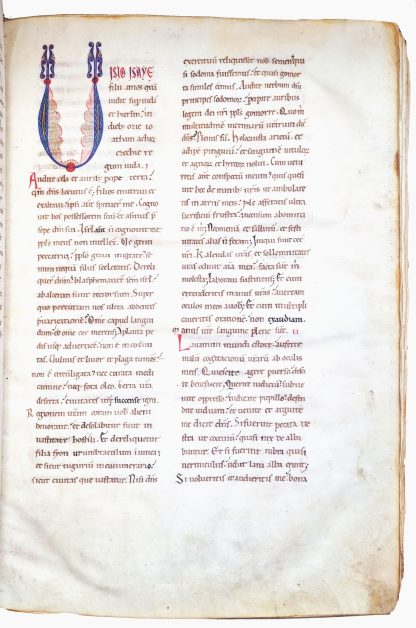 Visio isaye
filii amos quã
uidit sup iudã
et hierlm in
dieb ozie io
athan achaz
ezechie re
gum iuda.
Audite celi et aurib pcipe terra.
qm dns locutus e. filios enutriui et
exaltaui. ipsi aut spreuer me. Cognouit
bos possessorem suu et asinus p
sepe dni sui. Isrl aut n cognouit me.
ppls meus non intellex. Ve genti
peccatrici. pplo graui iniqtate. se
mini nequa filiis sceleratis. Derelin
quer dnm. blasphemauer scm isrl.
abalienati sunt retrorsum. Super
quo percutiam uos ultra addentes
puaricatione. Omne caput langui
dum. et omne cor merens. A planta pe
dis usq; ad uertice non e in eo sani
tas. Vulnus et liuor et plaga tumes
non e circuligata. nec curata medi
camine. neq; fota oleo. terra ura
deserta. ciuitates ure succense igni.
Regionem uram coram uob alieni
deuorant. et desolabitur sicut in
uastitate hostili. Et derelinquetur
filia syon ut umbraculum in uinea.
et sicut tugurium in cucumerario.
sicut ciuitas que uastatur. Nisi dns
exercituu reliquisset nob semen. quasi
sodoma fuissemus. et quasi gomor
ra similes essemus. Audite uerbum dni
principes sodomor. pcipite auribus
legem dei nri ppls gomorre. Quo m
multitudine uictimaru urarum dic
dns. Plenus su. Holocausta arietu et
adipe pinguiu. et sanguine uitulor
et agnor et hyrcor nolui. Cum uenire
tis ante conspectu meum. quis quesi
uit hec de manib uris ut ambulare
tis in atriis meis. Ne afferatis ultra
sacrificiu frustra. incensum abomina
tio e m. Neomenia et sabbatu. et festi
uitates alias n feram. Iniqui sunt ce
uri. Kalendas uras et sollemnitates
uras odiuit aia mea. facta sunt m
molesta. laboraui sustinens. Et cum
extenderitis manus uras. auertam
oculos meos a uob. Et cum multipli
caueritis orationem. non exaudiam.
manus ure sanguine plene sut.
Lauamini mundi estote. auferte
malu cogitationu uraru ab oculis
meis. Quiescite agere puerse. disci
te benefacere. Querite iudiciu. subue
nite oppresso. iudicate pupillo. defen
dite uiduam. et uenite et arguite
me dicit dns. Si fuerint peccata ue
stra ut coccinu. quasi nix dealba
buntur. Et si fuerint rubra quasi
uermiculus. uelut lana alba erunt.
Si uolueritis et audieritis me. bona